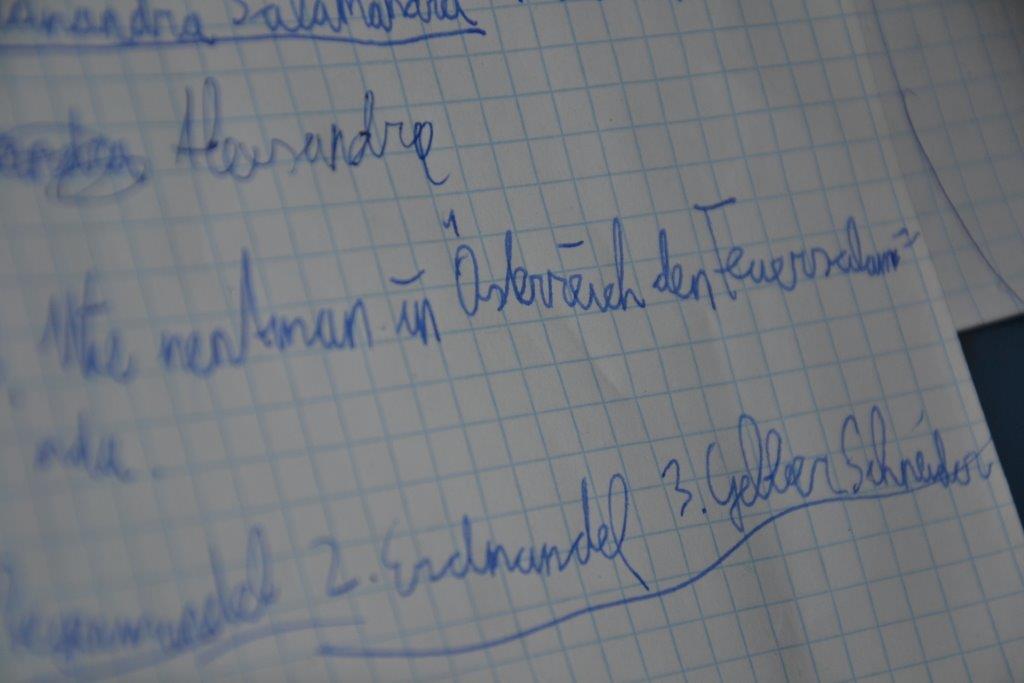 Salamandra
Alexandra
Wie nent man in Österreich den Feuersalam=
nda.
2. Erdmandel 3. Gelber Schneider